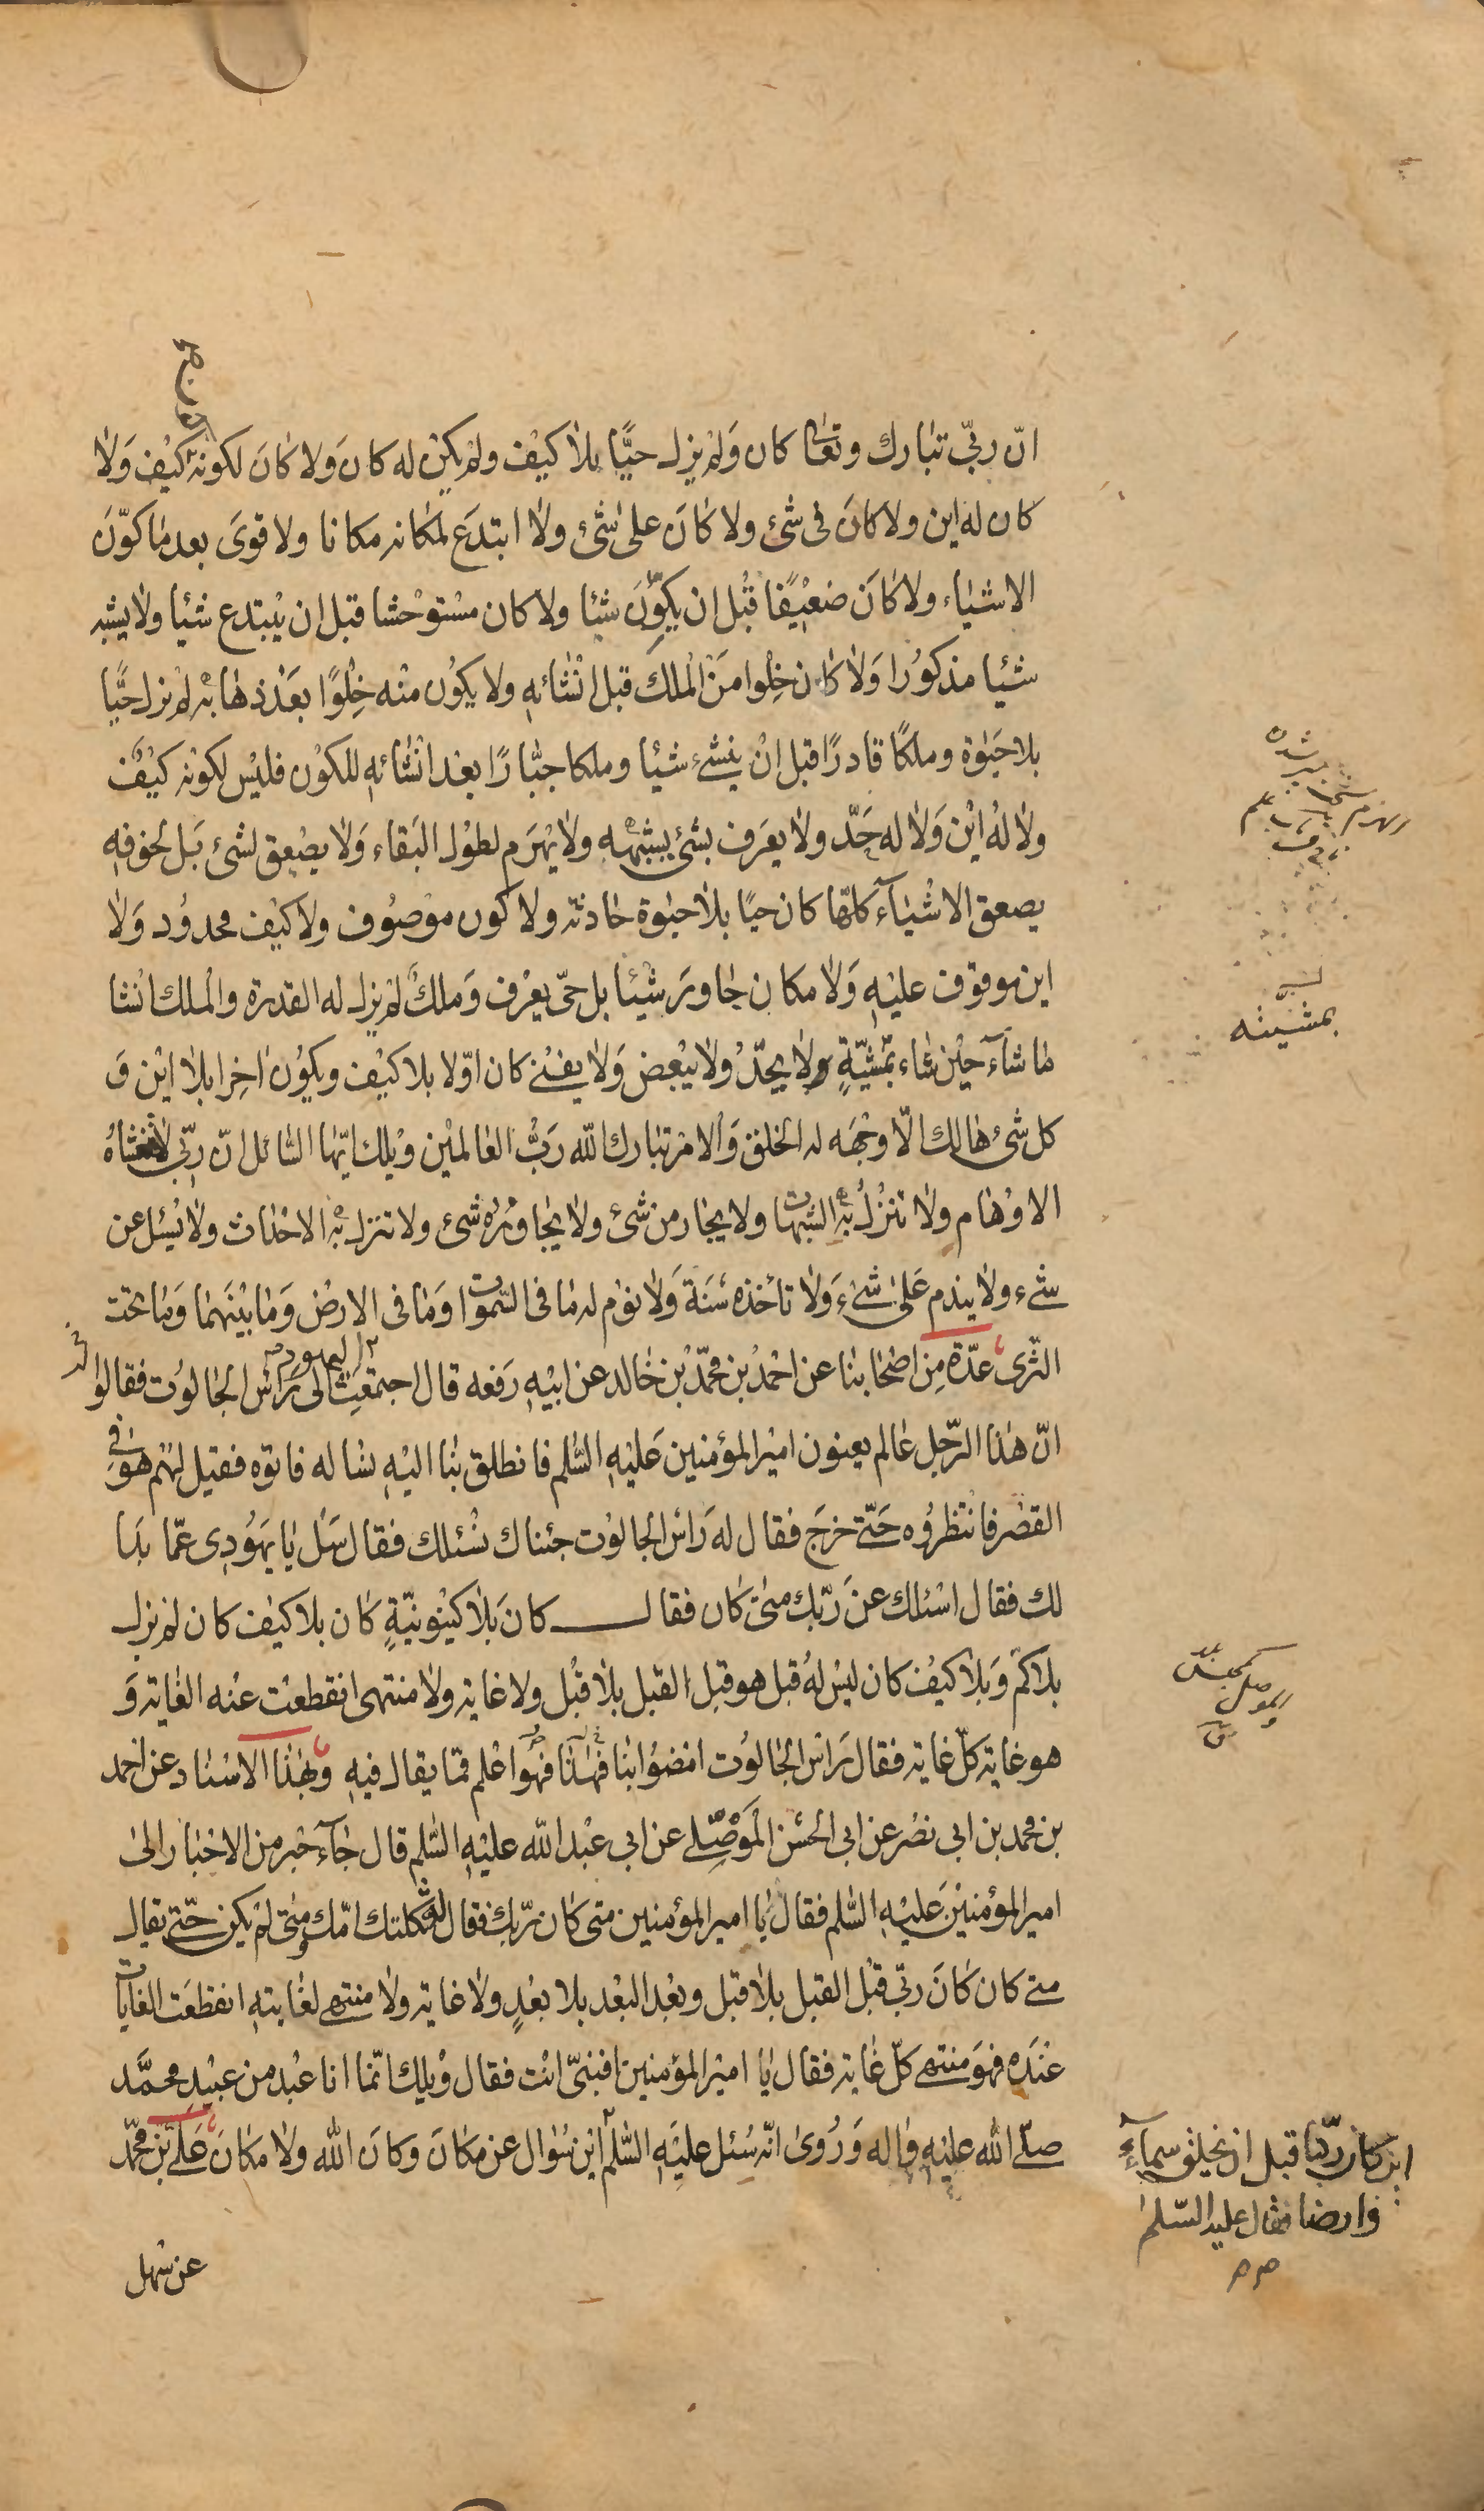 انّ ربّي تبارك وتعالى كان وَلم يزل حيًّا بلا كيْف ولم يكن له كان وَلا كانَ لكونهِ كيْف وَلا
كان له اين ولا كانَ فى شئ ولا كَانَ على شئ ولا ابتدَع لمكانه مكانا ولا قوىَ بعد ما كوّنَ
الاشياء ولا كانَ ضعيْفًا قبْل ان يكوِّنَ شيئا ولا كان مستوْحشا قبل ان يبْتدع شيئا ولا يشبه
شيْئا مذكوُرا وَلا كان خِلْوا منَ الْملك قبل انْشائهِ ولا يكوُن منْه خِلْوًا بعَد ذهابهِ لم يزل حيًّا
بلا حَيوٰة وملكًا قادرًا قبل انْ ينشئ شيْئا وملكا جبّارًا بعْد انشائهِ للكوْن فليْس لكونه كيْف
ولا لهُ ايْن وَلا له حَدّ ولا يعَرف بشئ يشبهه ولا يهرَم لطوُل البَقاء وَلا يصْعق لشئ بَل لخوفهِ
يصعق الاشْياءَ كلّها كان حيّا بلا حيوٰة حادثه ولا كون موْصوُف ولا كيْف محدوُد وَلا
اين موقوف عليْهِ وَلا مكان جاورَ شيْئا بل حىّ يعرْف وَملكٌ لم يزل له القدرة والْملك انْشا
ما شاءَ حيْن شاء بمشيّةٍ ولا يحدّ ولا يبْعض وَلا يفنى كان اوّلا بلا كيْف ويكوُن اٰخِرا بلا ايْن وَ
كل شئ هالك الّا وجْهَه له الخلق وَالامر تبارك اللّه رَبُّ العالميْن ويْلك ايّها السّائل انّ ربّى لا تغشاهُ
الاوْهام ولا تنزُل بهِ الشّبهات ولا يحار من شئ ولا يجاوزهُ شئ ولا تنزل بهِ الاحْداث ولا يُسئل عن
شئ ولا يندم عَلى شئ وَلا تأخذه سَنَة وَلا نوْم له ما فى السّموات وَما فى الارض وَما بيْنَهما وَما تحْت
الثّرى عدّة مِن اصْحابنا عن احْمدُ بْن محمّدُ بْن خالد عن ابيْهِ رَفعه قال اجتمعت اليهود الى رَأس الجالوُت فقالوا له
انّ هذا الرّجل عالم يعنون اميْر المؤمنين عَليْهِ السّلم فانطلق بنا اليْهِ نساله فاتوه فقيل لهمْ هو فى
القصْر فانتظروُه حَتّى خرَج فقال له رَاس الجالوُت جئناك نسْئلك فقال سَل يا يهَوُدى عمّا بدا
لك فقال اسْئلك عن رَبّك متىٰ كان فقال كانَ بَلا كيْنونيّةٍ كان بلا كيْف كان لم يزل
بلا كمّ وَبلا كيْف كان ليْس لهُ قبل هو قبل القبل بلا قبْل ولا غايه ولا منتهى انقطعت عنْه الغايه وَ
هو غايه كلّ غايه فقال رَاس الجالوُت امْضوُا بنا فهٰذا فهُوَ اعْلم ممّا يقال فيهِ وبهٰذا الاسْناد عن احْمد
بن محمد بن ابى نصْر عن ابى الحسْن الْمَوْصِلى عن ابى عبْد اللّه عليْهِ السّلم قال جاءَ حبْر من الاحْبار الىٰ
امير المؤمنيْن عَليْهِ السّلم فقال يا امير المؤمنين متى كان ربّك فقال له ثكلتك امّك ومتى لم يكن حتّى يقال
متى كان كانَ ربّى قبْل القبل بلا قبل وبعْد البعْد بلا بعْدٍ ولا غايه ولا منتهى لغايتهِ انقطعَت الغايات
عنْدَه فهوَ منتهى كلّ غايه فقال يا اميْر المؤمنين افنبىّ انْت فقال ويْلك انّما انا عبْد من عبيْد محمَّد
صلّى اللّه عليْهِ واٰله وَرُوىٰ انّه سُئل عليَهِ السّلم ايْن سؤال عن مكانَ وكانَ اللّه ولا مكانَ عَلى بْن محمّد
عن سْهل
بمشيّته
الموصلى
اين كان ربّنا قبل ان يخلق سماءً
وارضا فقال عليه السّلم